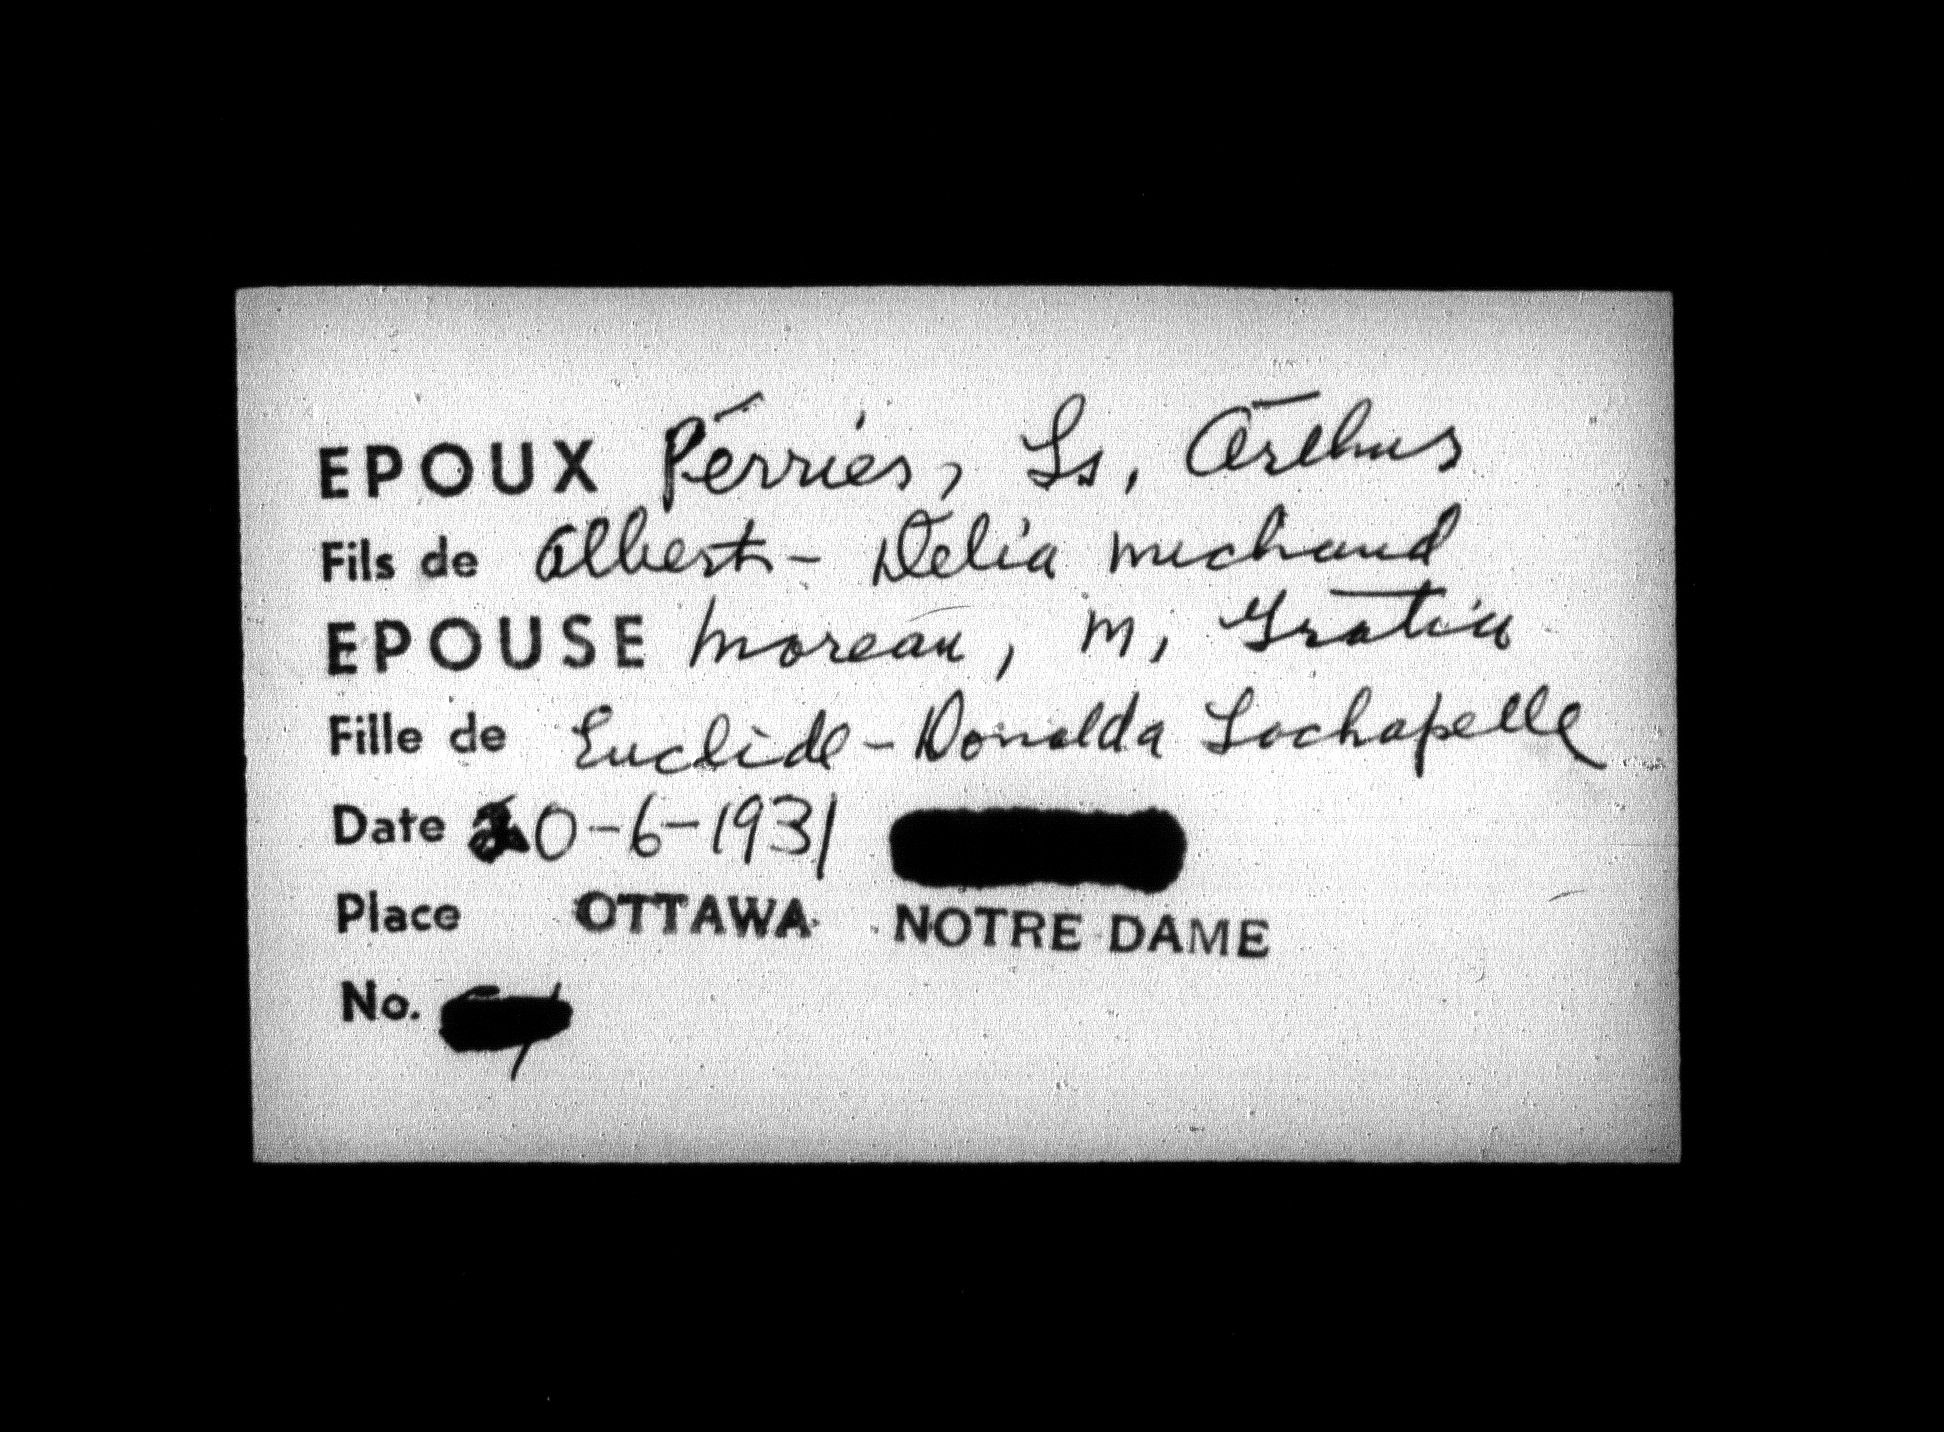 EPOUX Périès, Ls, Arthur
Fils de Albert - Délia Michaud
EPOUSE Moreau, M, Gratia
Fille de Euclide - Donalda Lachapelle
Date 20-6-1931
Place OTTAWA NOTRE DAME
No.